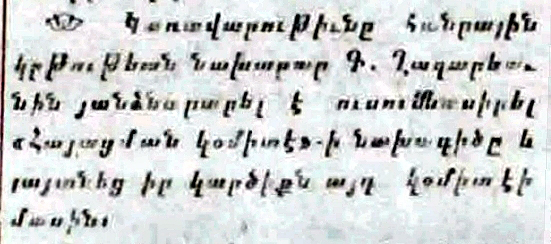 Կառավարութիւնը Հանրային
կրթութեան նախարար Գ. Ղազարեա-
նին յանձնարարել է ուսումնասիրել
«Հայացման կօմիտէ»-ի նախագիծը և
յայտնել իր կարծիքն այդ կօմիտէի
մասին։